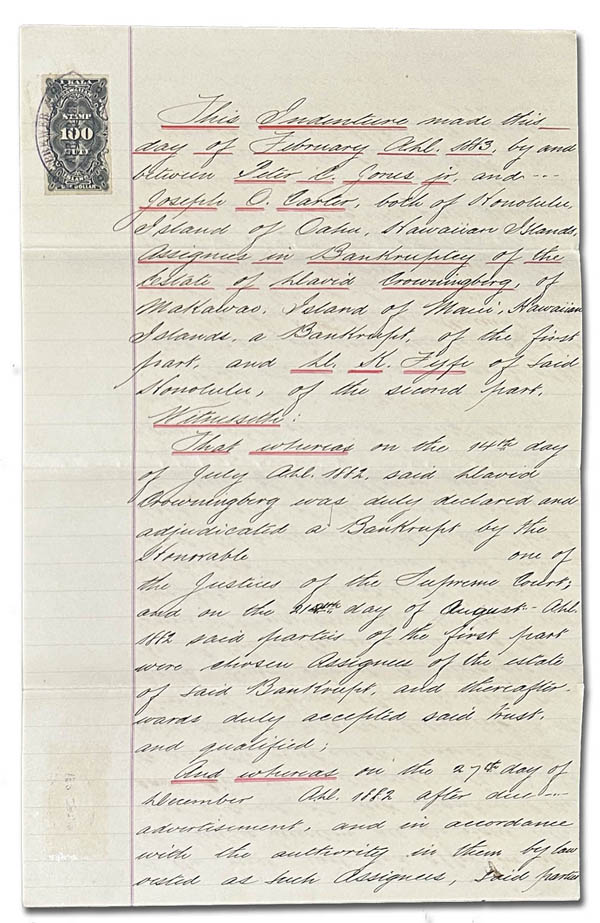 1 KALA
STAMP
100
DUTY
This Indenture made this
day of February A.D. 1883, by and
between Peter C. Jones jr. and ---
Joseph O. Carter, both of Honolulu,
Island of Oahu, Hawaiian Islands,
Assignees in Bankruptcy of the
Estate of David Crowningberg, of
Makawao, Island of Maui, Hawaiian
Islands, a Bankrupt, of the first
part, and D. K. Fyfe of said
Honolulu, of the second part.
Witnesseth:
That whereas on the 14th day
of July A.D. 1882, said David
Crowningberg was duly declared and
adjudicated a Bankrupt by the
Honorable one of
the Justices of the Supreme Court;
and on the 21st day of August - A.D.
1882 said parties of the first part
were chosen Assignees of the estate
of said Bankrupt, and thereafter-
wards duly accepted said trust,
and qualified;
And whereas on the 27th day of
December A.D. 1882 after due ---
advertisement, and in accordance
with the authority in them by law
vested as such Assignees, said parties